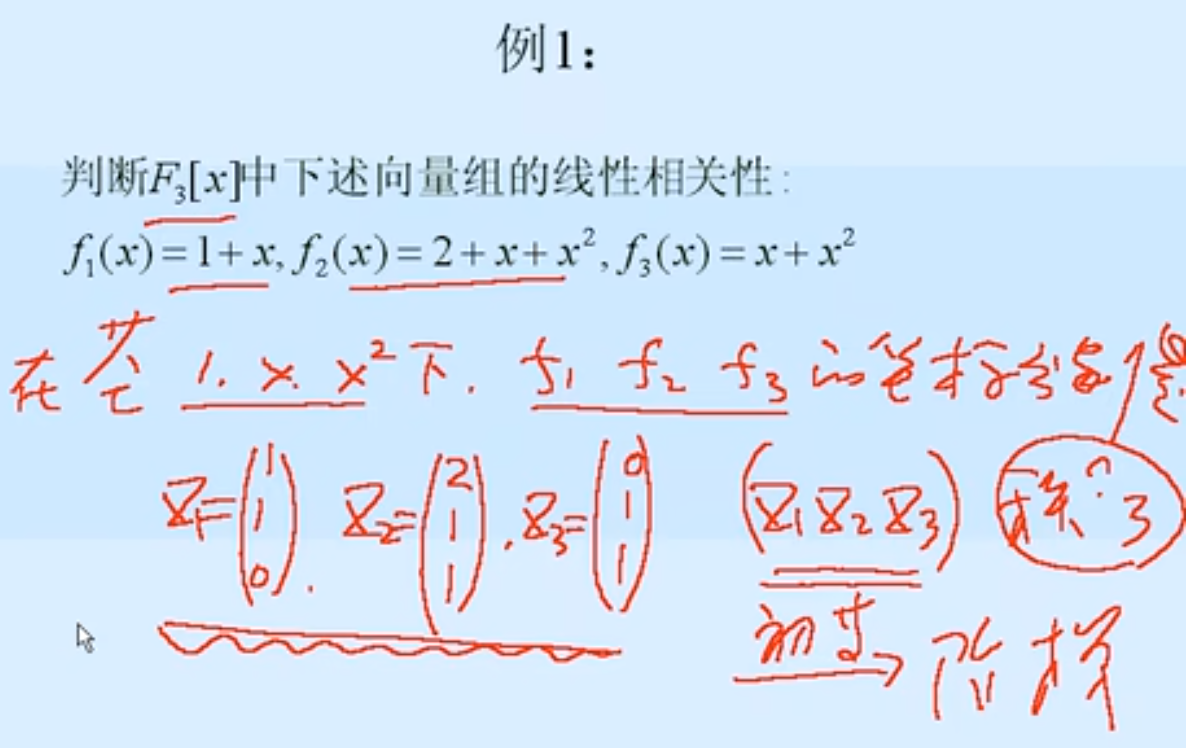 例1：
判断F₃[x]中下述向量组的线性相关性:
f₁(x)=1+x, f₂(x)=2+x+x², f₃(x)=x+x²
在基 1. x. x² 下. f₁ f₂ f₃ 的坐标分别是
X₁=(1 1 0). X₂=(2 1 1), X₃=(0 1 1) (X₁ X₂ X₃) 秩? 3
初等→ 阶梯